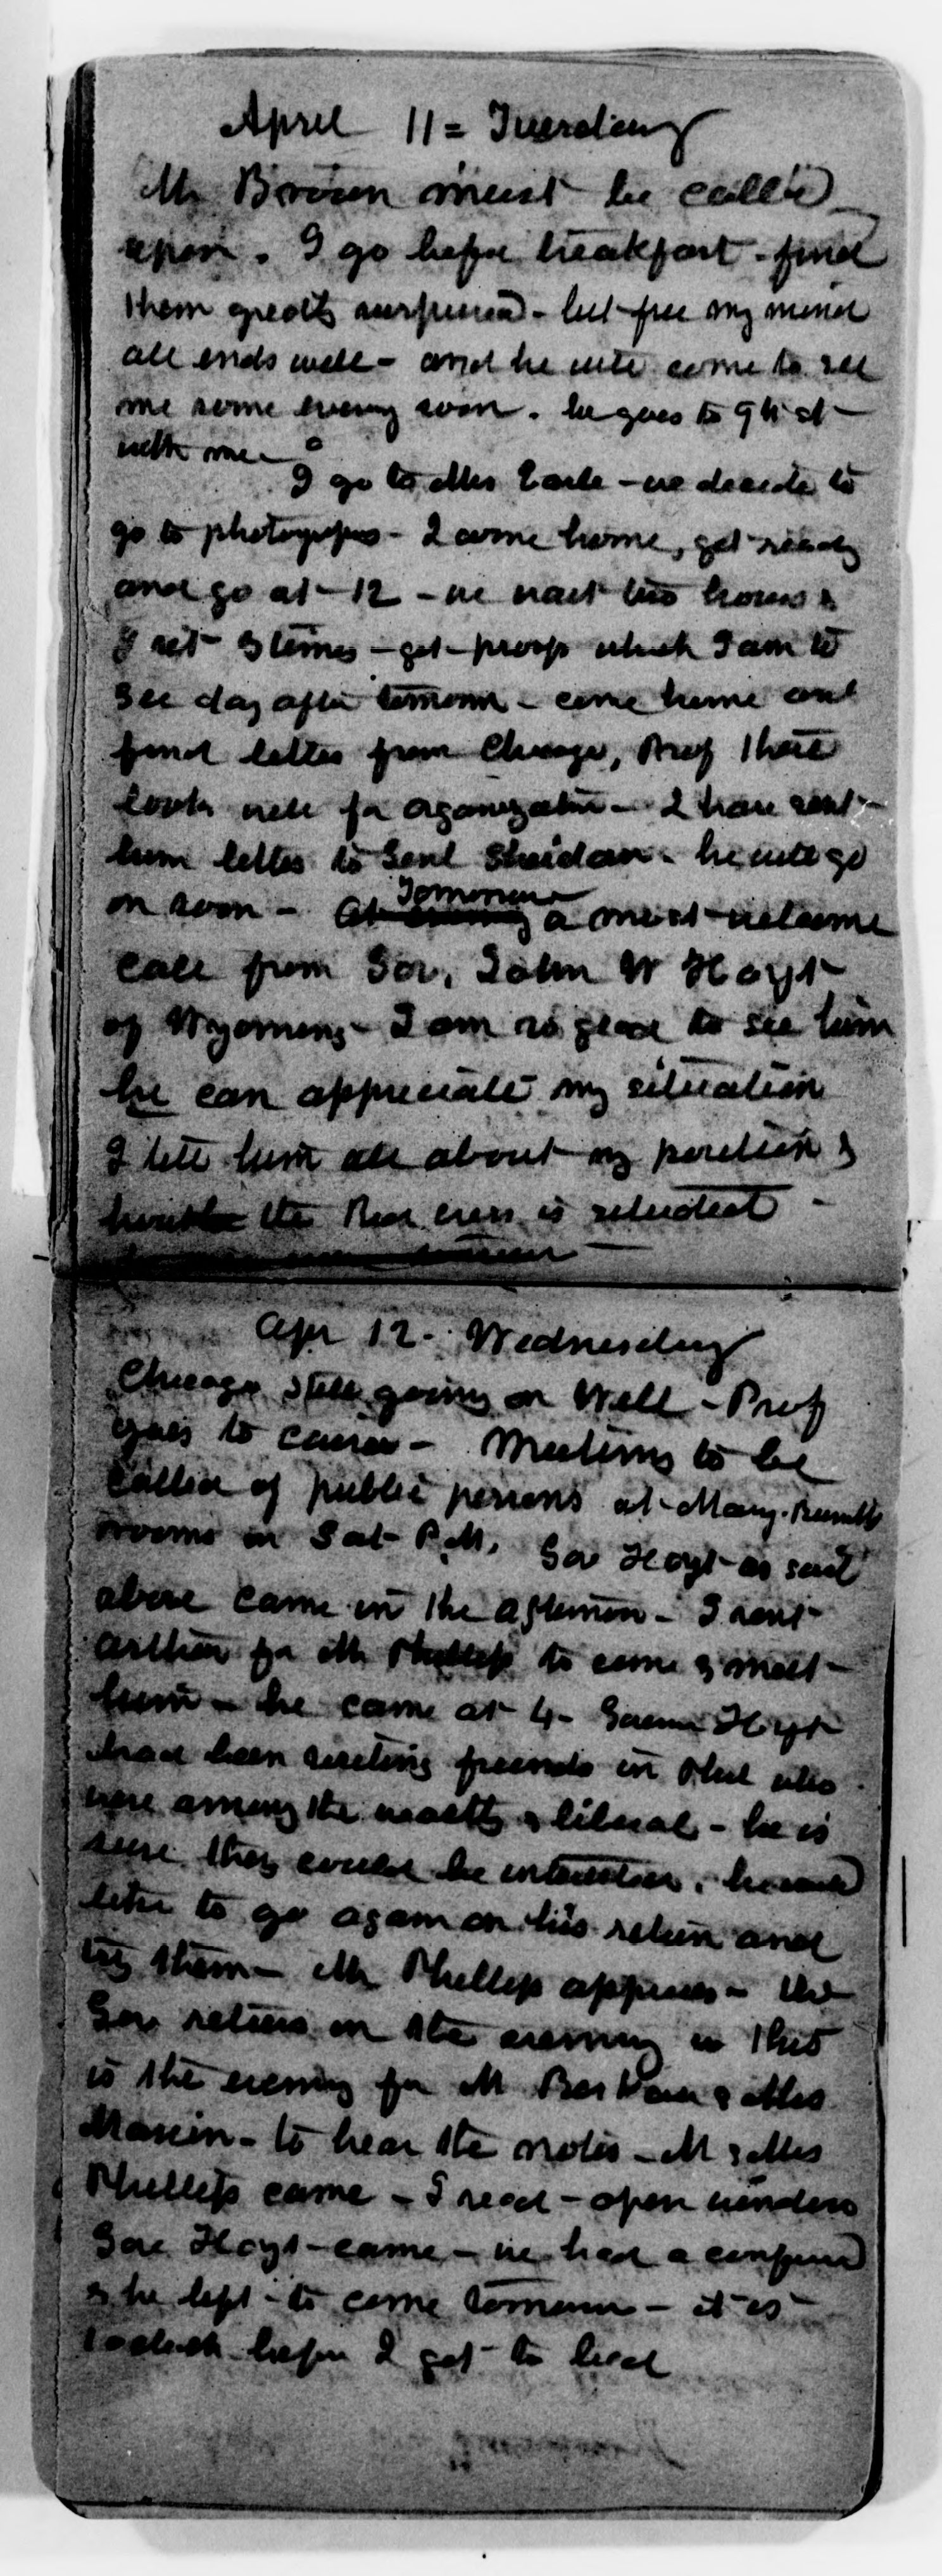 April 11 = Tuesday
Mr Brown must be called
upon. I go before breakfast - find
them greatly surprised - but free my mind
all ends well - and he will come to see
me some evening soon. he goes to 9th st
with me -
I go to Mrs Earle - we decide to
go to photographs - I come home, get ready
and go at 12 - we wait two hours &
I sit 3 times - get proofs which I am to
see day after tomorrow - come home and
find letter from Chicago, Prof there
looks well for organization - I have sent
him letter to Genl Sheridan. he will go
on soon - At evening Tomorrow a most welcome
call from Gov. John W Hoyt
of Wyoming - I am so glad to see him
he can appreciate my situation
I tell him all about my position &
the Red cross is
Apr 12. Wednesday
Chicago still going on Well - Prof
goes to Cairo - Meetings to be
called of public persons at Mary
rooms on Sat P.M. Gov Hoyt as said
above came in the afternoon - I sent
for Mr Phillips to come & meet
him - he came at 4 - Hoyt
had been visiting friends in Phil who
were among the wealthy & liberal - he is
sure they could be interested, he would
like to go again on his return and
try them - Mr Phillips approves - the
Gov returns in the evening as this
is the evening for Mr & Mrs
to hear the notes - Mr & Mrs
Phillips came - I read - open windows
Gov Hoyt came - we had a
& he left to come tomorrow - it is
1 oclock before I get to bed